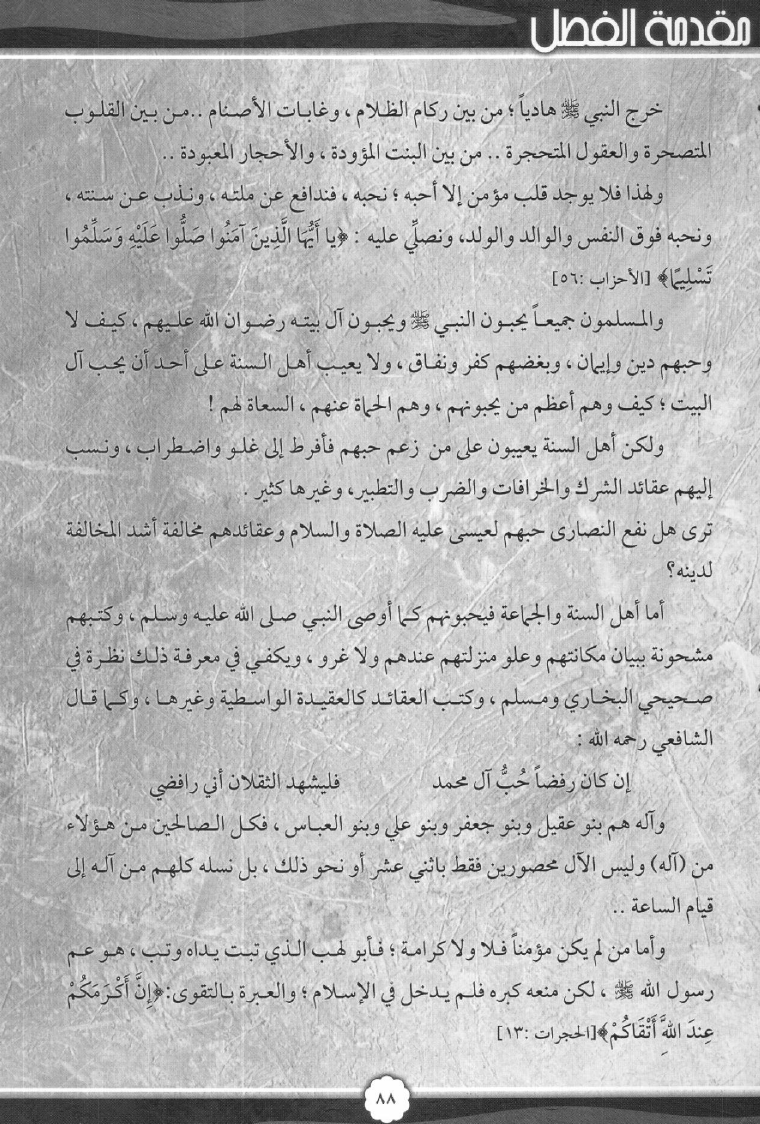 مقدمة الفصل
خرج النبي ﷺ هادياً ؛ من بين ركام الظلام ، وغابات الأصنام ..من بين القلوب
المتصحرة والعقول المتحجرة .. من بين البنت المؤودة ، والأحجار المعبودة ..
ولهذا فلا يوجد قلب مؤمن إلا أحبه ؛ نحبه ، فندافع عن ملته ، ونذب عن سنته ،
ونحبه فوق النفس والوالد والولد، ونصلِّي عليه : ﴿يا أَيُّهَا الَّذِينَ آمَنُوا صَلُّوا عَلَيْهِ وَسَلِّمُوا
تَسْلِيمًا﴾ [الأحزاب :٥٦]
والمسلمون جميعاً يحبون النبي ﷺ ويحبون آل بيته رضوان الله عليهم ، كيف لا
وحبهم دين وإيمان ، وبغضهم كفر ونفاق ، ولا يعيب أهل السنة على أحد أن يحب آل
البيت ؛ كيف وهم أعظم من يحبونهم ، وهم الحماة عنهم ، السعاة لهم !
ولكن أهل السنة يعيبون على من زعم حبهم فأفرط إلى غلو واضطراب ، ونسب
إليهم عقائد الشرك والخرافات والضرب والتطبير، وغيرها كثير .
ترى هل نفع النصارى حبهم لعيسى عليه الصلاة والسلام وعقائدهم مخالفة أشد المخالفة
لدينه؟
أما أهل السنة والجماعة فيحبونهم كما أوصى النبي صلى الله عليه وسلم ، وكتبهم
مشحونة ببيان مكانتهم وعلو منزلتهم عندهم ولا غرو ، ويكفي في معرفة ذلك نظرة في
صحيحي البخاري ومسلم ، وكتب العقائد كالعقيدة الواسطية وغيرها ، وكما قال
الشافعي رحمه الله :
إن كان رفضاً حُبُّ آل محمد فليشهد الثقلان أني رافضي
وآله هم بنو عقيل وبنو جعفر وبنو علي وبنو العباس ، فكل الصالحين من هؤلاء
من (آله) وليس الآل محصورين فقط باثني عشر أو نحو ذلك ، بل نسله كلهم من آله إلى
قيام الساعة ..
وأما من لم يكن مؤمناً فلا ولا كرامة ؛ فأبو لهب الذي تبت يداه وتب ، هو عم
رسول الله ﷺ ، لكن منعه كبره فلم يدخل في الإسلام ؛ والعبرة بالتقوى:﴿إِنَّ أَكْرَمَكُمْ
عِندَ اللَّهِ أَتْقَاكُمْ﴾[الحجرات :١٣]
٨٨